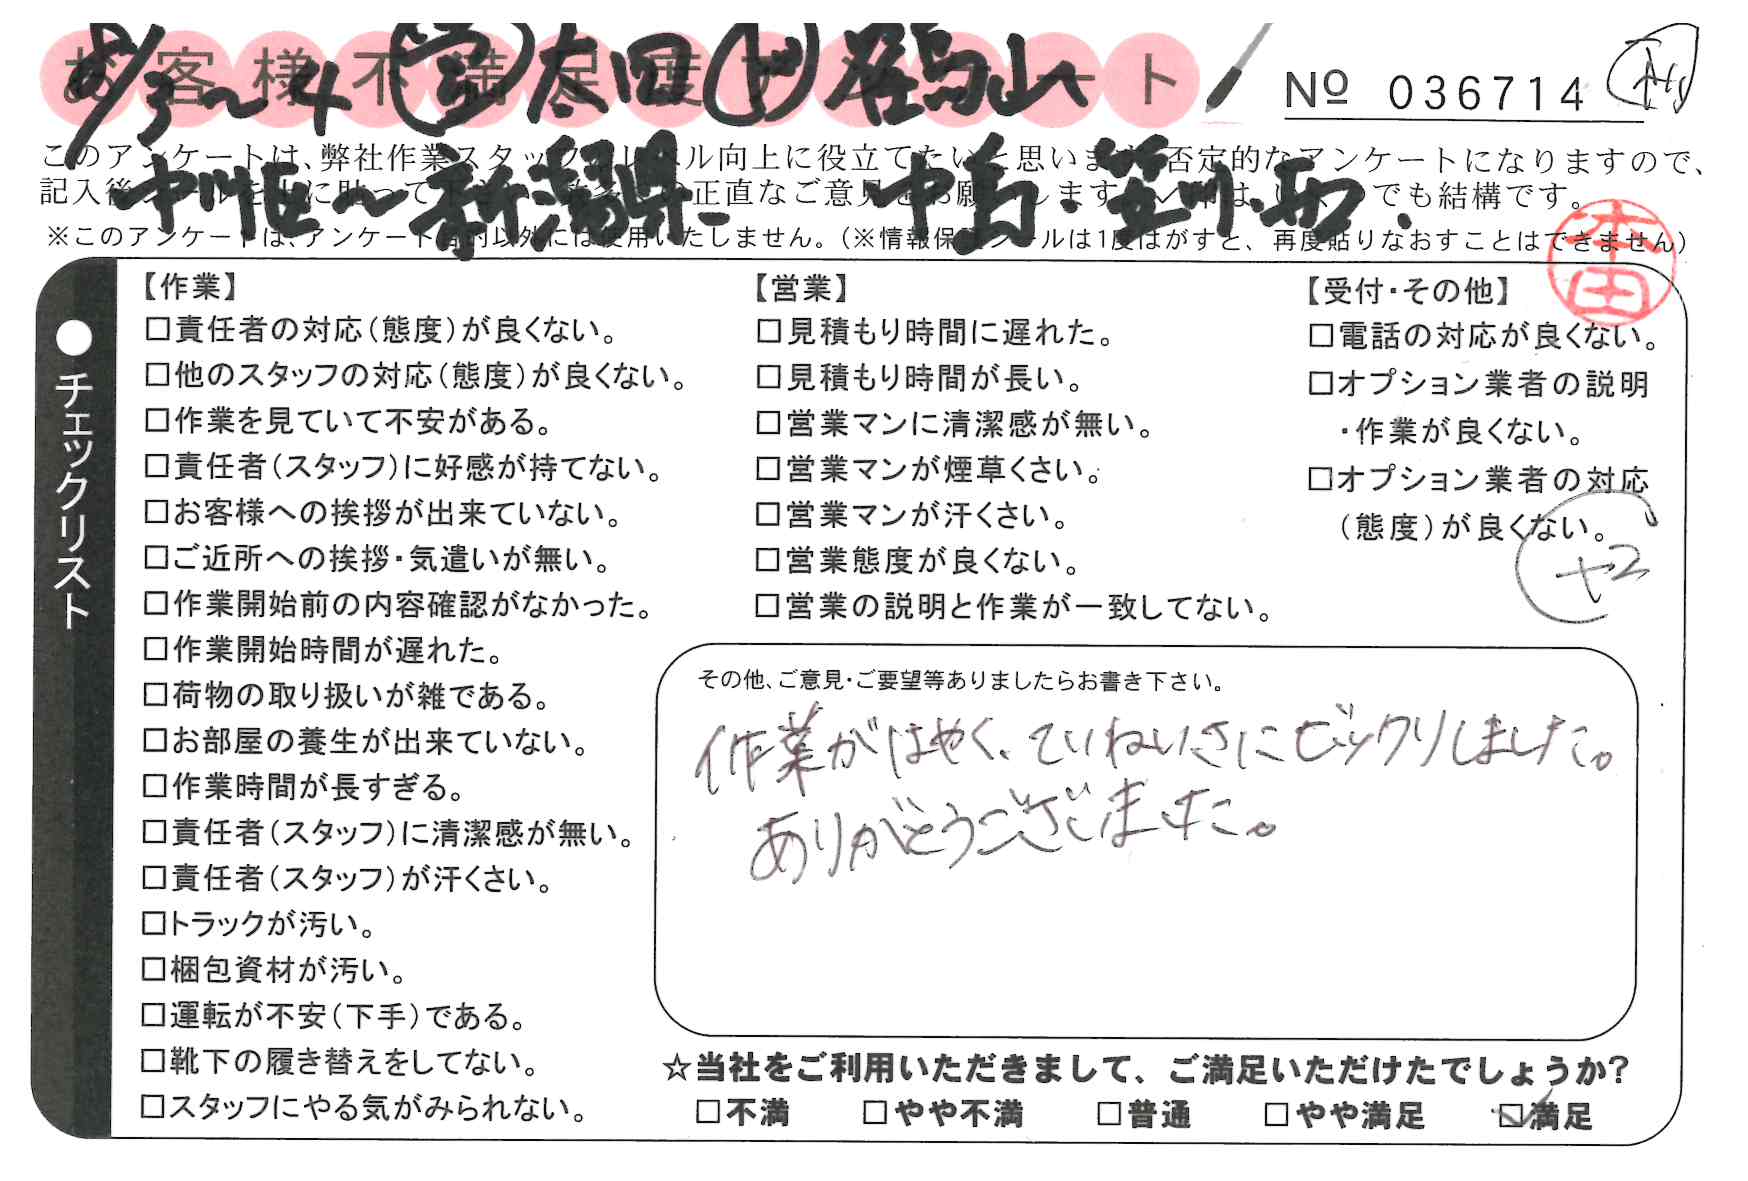 お客様不満足度アンケート
8/3~4 太田
№ 036714
このアンケートは、弊社作業スタッフのレベル向上に役立てたいと思います。否定的なアンケートになりますので、
記入後シールを上に貼って下さい。お客様の正直なご意見をお願いします。
中川区～新潟県 中島・笠川・西
※このアンケートは、アンケート目的以外には使用いたしません。(※情報保護シールは1度はがすと、再度貼りなおすことはできません)
本田
●チェックリスト
【作業】
□責任者の対応(態度)が良くない。
□他のスタッフの対応(態度)が良くない。
□作業を見ていて不安がある。
□責任者(スタッフ)に好感が持てない。
□お客様への挨拶が出来ていない。
□ご近所への挨拶・気遣いが無い。
□作業開始前の内容確認がなかった。
□作業開始時間が遅れた。
□荷物の取り扱いが雑である。
□お部屋の養生が出来ていない。
□作業時間が長すぎる。
□責任者(スタッフ)に清潔感が無い。
□責任者(スタッフ)が汗くさい。
□トラックが汚い。
□梱包資材が汚い。
□運転が不安(下手)である。
□靴下の履き替えをしてない。
□スタッフにやる気がみられない。
【営業】
□見積もり時間に遅れた。
□見積もり時間が長い。
□営業マンに清潔感が無い。
□営業マンが煙草くさい。
□営業マンが汗くさい。
□営業態度が良くない。
□営業の説明と作業が一致してない。
【受付・その他】
□電話の対応が良くない。
□オプション業者の説明
・作業が良くない。
□オプション業者の対応
(態度)が良くない。
+2
その他、ご意見・ご要望等ありましたらお書き下さい。
作業がはやく、ていねいさにビックリしました。
ありがとうございました。
☆当社をご利用いただきまして、ご満足いただけたでしょうか?
□不満 □やや不満 □普通 □やや満足 ☑満足